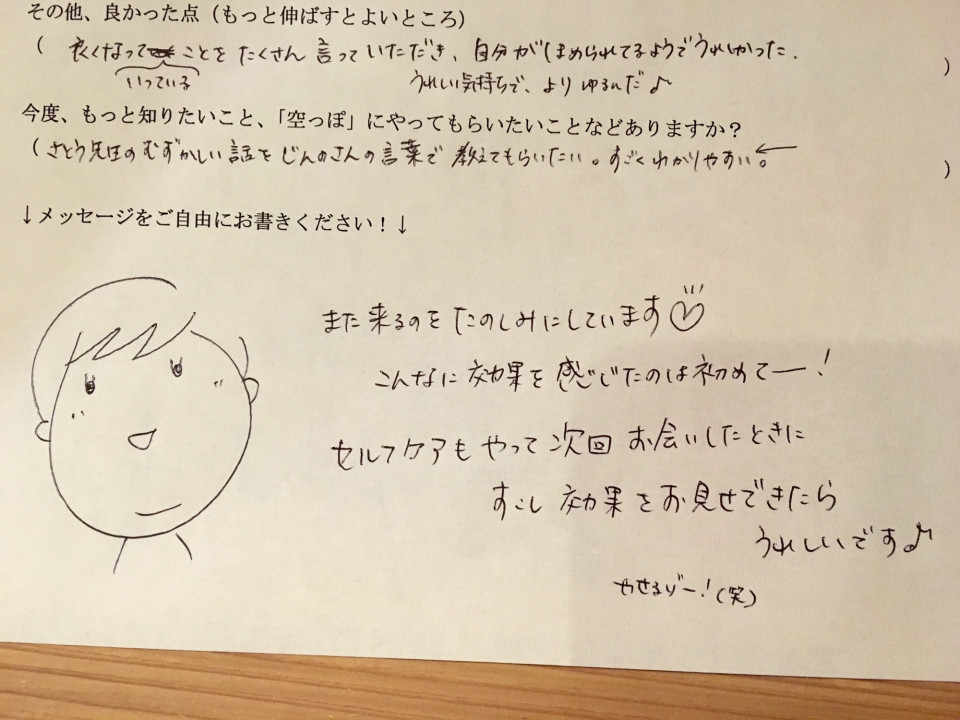 その他、良かった点（もっと伸ばすとよいところ）
( 良くなって ことを たくさん 言って いただき、自分がほめられてるようでうれしかった. )
いっている
うれしい気持ちで、より ゆるんだ♪
今度、もっと知りたいこと、「空っぽ」にやってもらいたいことなどありますか？
( さとう先生の むずかしい 話を じんのさんの言葉で 教えてもらいたい。すごく わかりやすい。← )
↓メッセージをご自由にお書きください！↓
また来るのを たのしみにしています♡
こんなに 効果を 感じたのは初めてー！
セルフケアも やって 次回 お会いしたときに
すこし 効果を お見せできたら
うれしいです♪
やせるゾー！(笑)